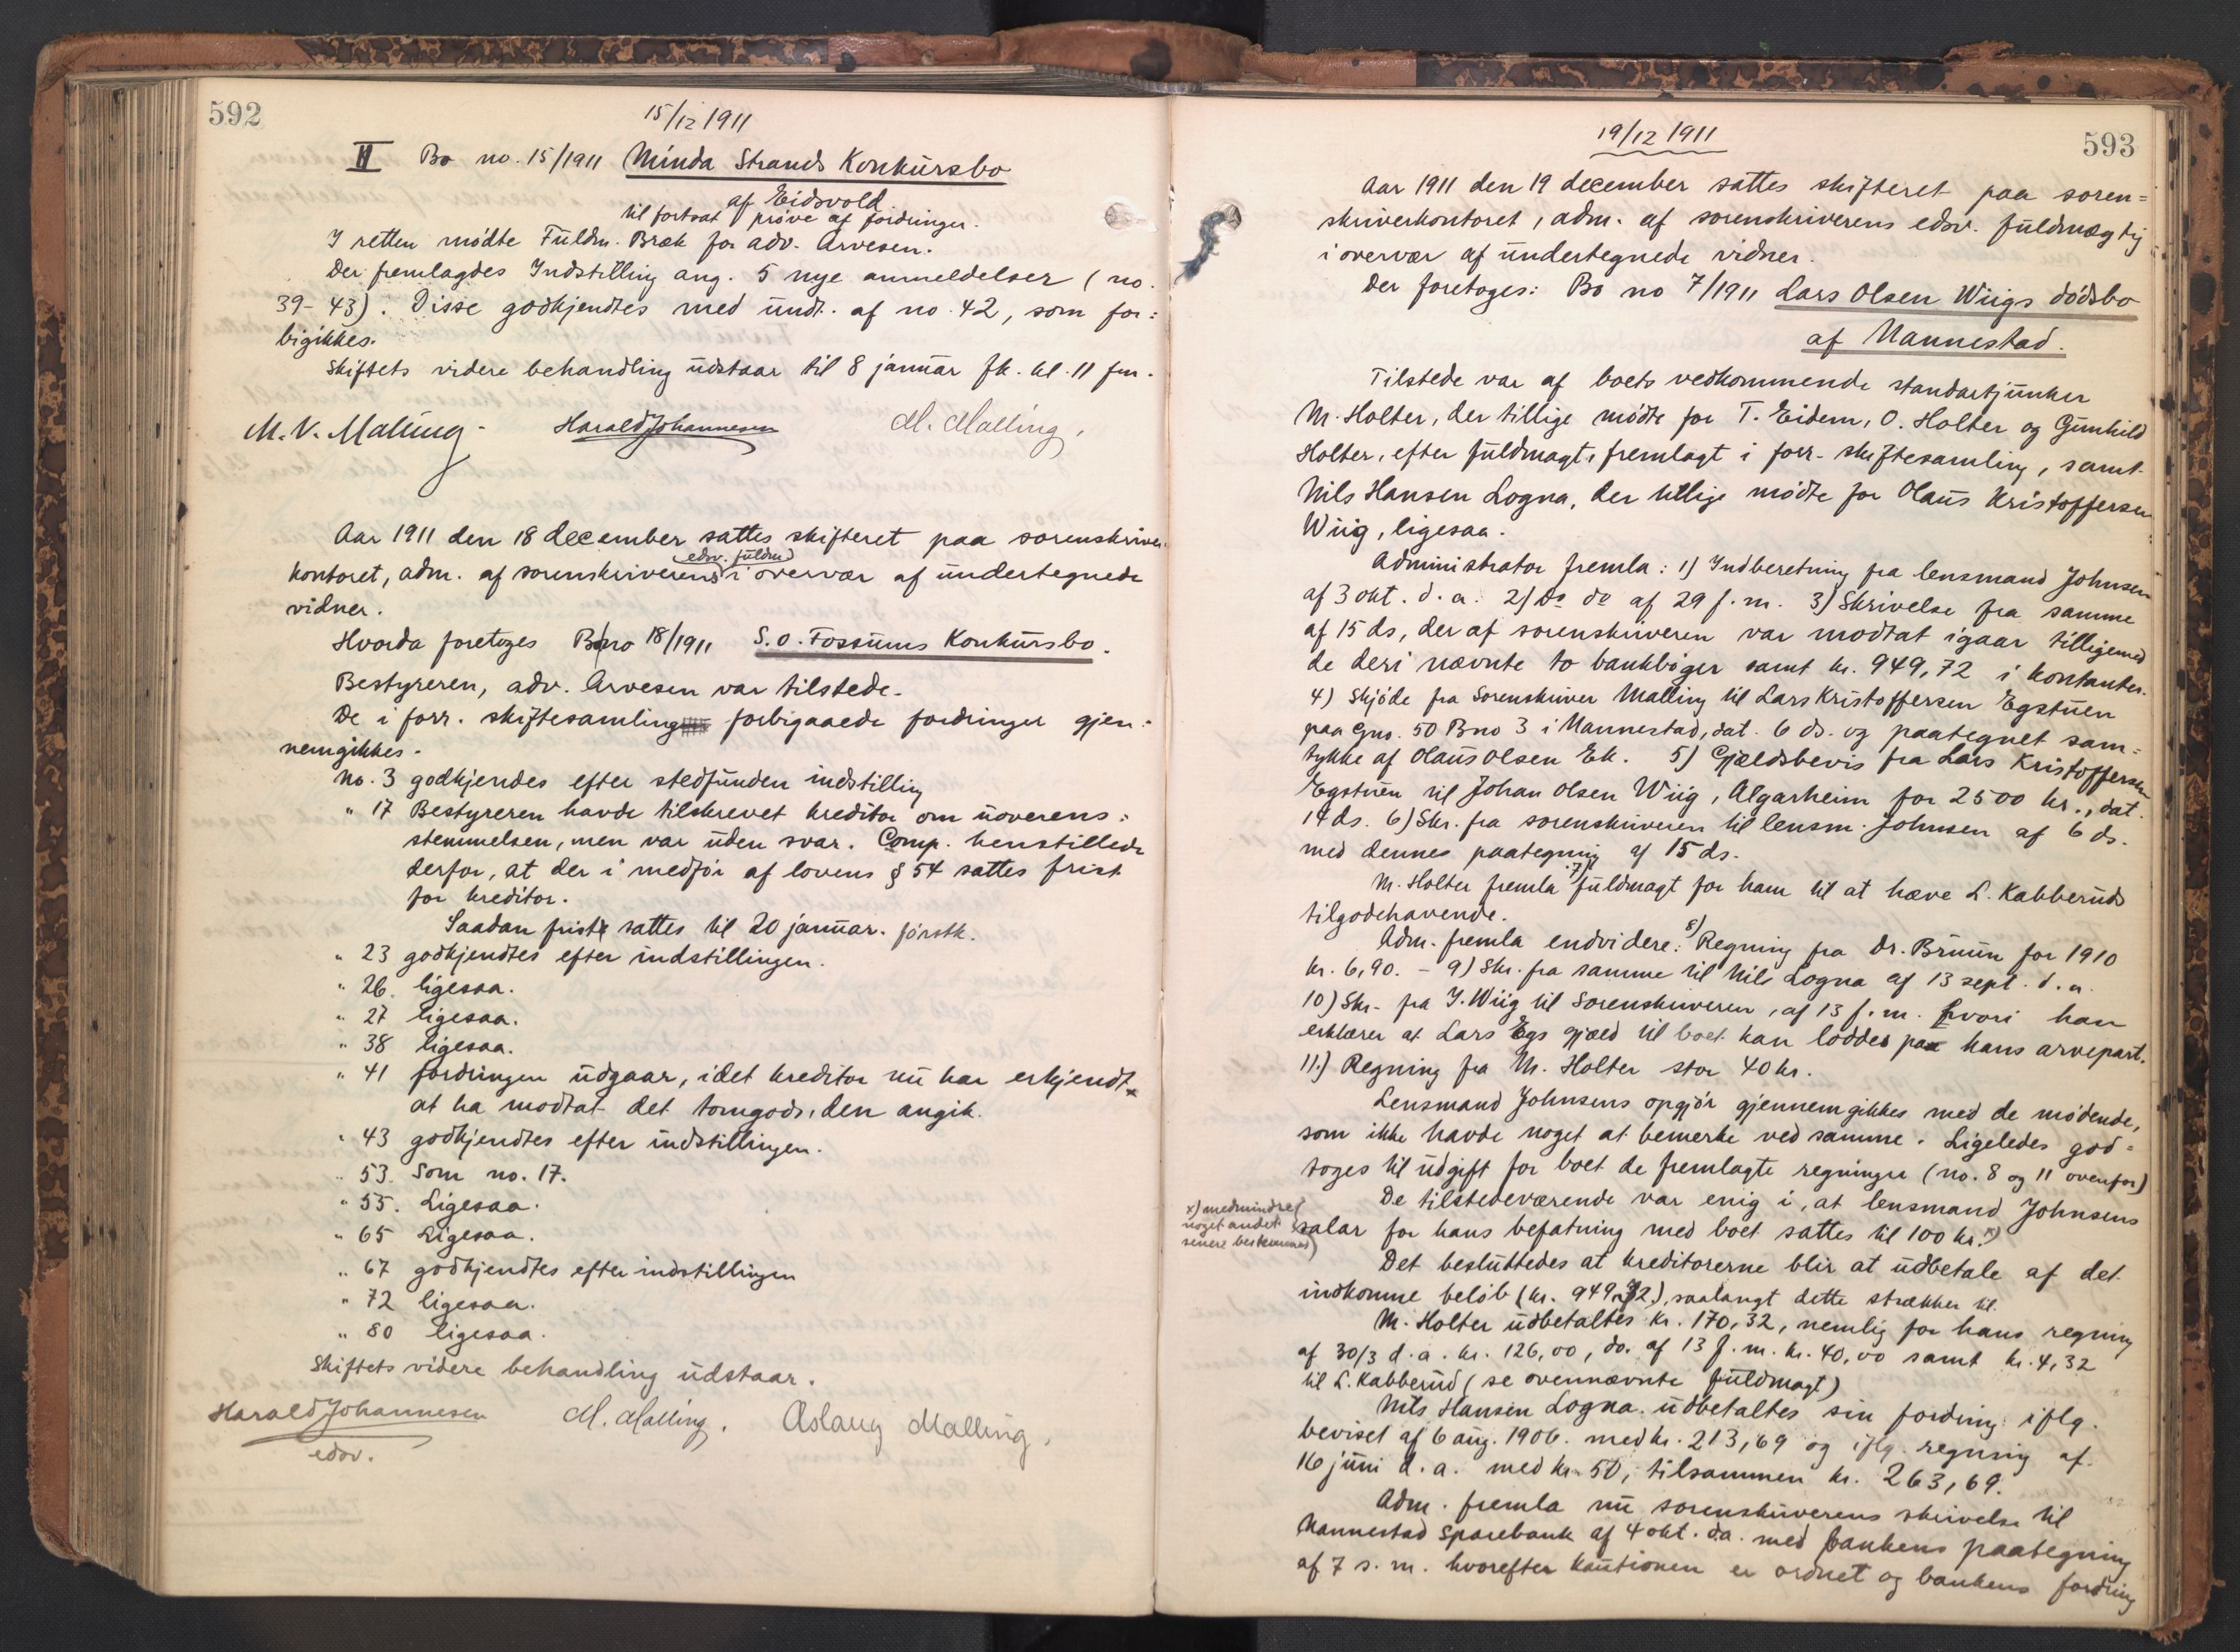 592
15/12 1911
II Bo no. 15/1911 Minda Strands Konkursbo
af Eidsvold
til fortsat prøve af fordringer.
I retten mødte Fuldm. Bræk for adv. Arvesen.
Der fremlagdes Indstilling ang. 5 nye anmeldelser (no.
39-43). Disse godkjendtes med undt. af no. 42, som for=
bigikkes.
Skiftets videre behandling udstaar til 8 januar fk. kl. 11 fm.
M. V. Malling. Harald Johannesen M. Malling,
Aar 1911 den 18 december sattes skifteret paa sorenskriver
edsv. fuldm
kontoret, adm. af sorenskriverens i overvær af undertegnede
vidner.
Hvorda foretoges Bo no 18/1911 S. O. Fossums Konkursbo.
Bestyreren, adv. Arvesen var tilstede.
De i forr. skiftesamling forbigaaede fordringer gjen=
nemgikkes.
No. 3 godkjendes efter stedfunden indstilling
" 17 Bestyreren havde tilskrevet kreditor om uoverens=
stemmelsen, men var uden svar. Comp. henstillede
derfor, at der i medfør af lovens § 54 sattes frist
for kreditor.
Saadan frist sattes til 20 januar. førstk.
" 23 godkjendtes efter indstillingen.
" 26. ligesaa.
" 27 ligesaa.
" 38 ligesaa.
" 41 fordringen udgaar, idet kreditor nu har erkjendt
at ha modtat det tomgods, den angik.
" 43 godkjendtes efter indstillingen.
" 53. Som no. 17.
" 55. Ligesaa.
" 65 Ligesaa.
" 67 godkjendtes efter indstillingen
" 72 ligesaa.
" 80 ligesaa.
Skiftets videre behandling udstaar.
Harald Johannesen M. Malling. Aslaug Malling.
edsv.
19/12 1911
593
Aar 1911 den 19 december sattes skifteret paa soren=
skriverkontoret, adm. af sorenskriverens edsv. fuldmægtig
i overvær af undertegnede vidner.
Der foretoges: Bo no 7/1911 Lars Olsen Wiigs dødsbo
af Nannestad.
Tilstede var af boets vedkommende standartjunker
M. Holter, der tillige mødte for T. Eidem, O. Holter og Gunhild
Holter, efter fuldmagt, fremlagt i forr. skiftesamling, samt
Nils Hansen Logna, der tillige mødte for Olaus Kristoffersen
Wiig, ligesaa.
Administrator fremla: 1) Indberetning fra lensmand Johnsen
af 3 okt. d. a. 2) Do do af 29 f. m. 3) Skrivelse fra samme
af 15 ds, der af sorenskriveren var modtat igaar tilligemed
de deri nævnte to bankbøger samt kr. 949,72 i kontanter.
4) Skjøde fra Sorenskriver Malling til Lars Kristoffersen Egstuen
paa Gno. 50 Bno 3 i Nannestad, dat. 6 ds. og paategnet sam=
tykke af Olaus Olsen Ek. 5) Gjældsbevis fra Lars Kristoffersen
Egstuen til Johan Olsen Wiig, Algarheim for 2500 kr., dat.
14 ds. 6) Skr. fra sorenskriveren til lensm. Johnsen af 6 ds.
med dennes paategning af 15 ds.
M. Holter fremla 7) fuldmagt for ham til at hæve L. Kabberuds
tilgodehavende.
Adm. fremla endvidere: 8) Regning fra Dr. Bruun for 1910
kr. 6,90. - 9) Skr. fra samme til Nils Logna af 13 sept. d. a.
10) Skr. fra J. Wiig til Sorenskriveren, af 13 f. m. hvori han
erklærer at Lars Egs gjæld til boet kan loddes paa hans arvepart.
11.) Regning fra M. Holter stor 40 kr.
Lensmand Johnsens opgjør gjennemgikkes med de mødende,
som ikke havde noget at bemerke ved samme. Ligeledes god=
toges til udgift for boet de fremlagte regninger (no. 8 og 11 ovenfor)
De tilstedeværende var enig i, at lensmand Johnsens
salar for hans befatning med boet sattes til 100 kr. x)
x) medmindre
noget andet
senere bestemmes)
Det besluttedes at kreditorerne blir at udbetale af det
indkomne beløb (kr. 949,72), saalangt dette strækker til.
M. Holter udbetaltes kr. 170,32, nemlig for hans regning
af 30/3 d. a. kr. 126,00, do. af 13 f. m. kr. 40,00 samt kr. 4,32
til L. Kabberud (se ovennævnte fuldmagt)
Nils Hansen Logna udbetaltes sin fordring iflg.
beviset af 6 aug. 1906. med kr. 213,69 og iflg. regning af
16 juni d. a. med kr. 50, tilsammen kr. 263,69.
Adm. fremla nu sorenskriverens skrivelse til
Nannestad Sparebank af 4 okt. d.a. med bankens paategning
af 7 s. m. hvorefter kautionen er ordnet og bankens fordring